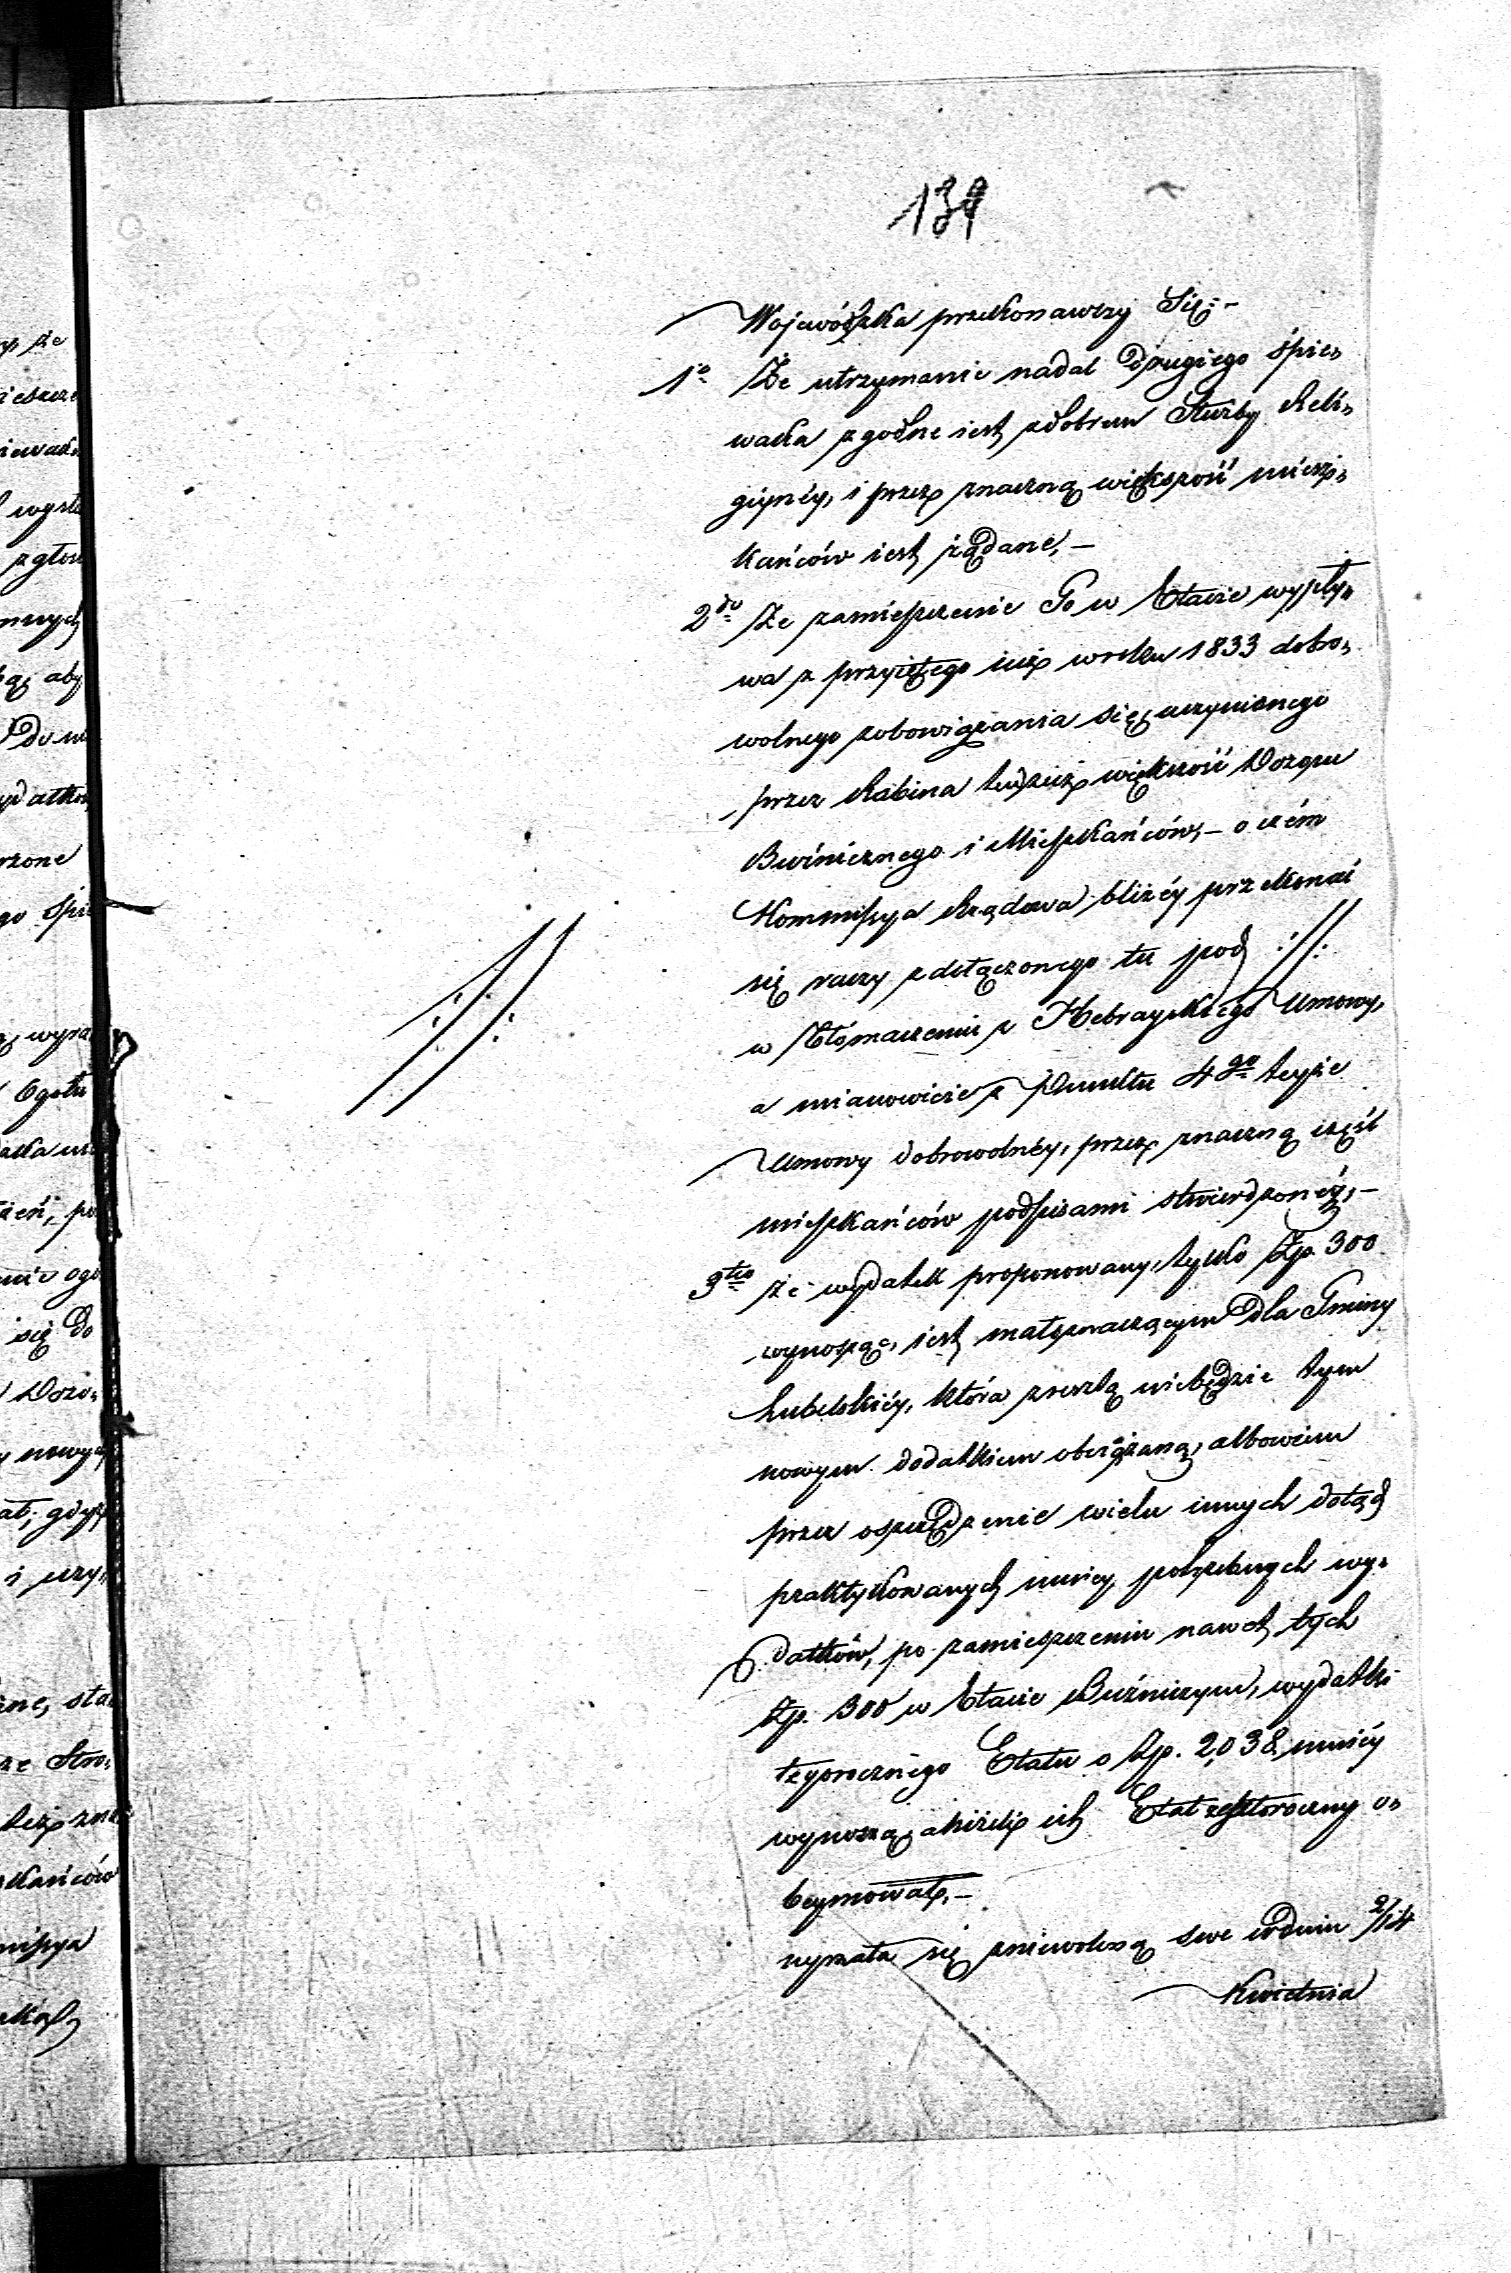 139
Wojewódzka przekonawszy Się:-
1o Że utrzymanie nadal drugiego śpie„
waka zgodne iest z dobrem Służby Reli„
giyney, i przez znaczną większość miesz„
kańców iest żądane,-
2do Że zamieszczenie Go w Etacie wypły„
wa z przyiętego iuż w roku 1833 dobro„
wolnego zobowiązania się uczynionego
przez Rabina tudzież większość Dozoru
Bóżnicznego i Mieszkańców,- o czém
Kommissya Rządowa bliżéy przekonać
się raczy z dołączonego tu pod ://:
w Tłomaczeniu z Hebrayskiego Umowy,
a mianowicie z Punktu 4go teyże
Umowy dobrowolnéy, przez znaczną część
mieszkańców podpisami stwierdzonéy,-
3tio że wydatek proponowany, tylko Złp. 300
wynosząc, iest małoznaczącym dla Gminy
Lubelskiéy, która zresztą niebędzie tym
nowym dodatkiem obciążaną, albowiem
przez oszczędzenie wielu innych dotąd
praktykowanych mniey potrzebnych wy„
datków, po zamieszczeniu nawet tych
Złp. 300 w Etacie Bużniczym, wydatki
tegorocznego Etatu o Złp. 2,038 mniéy
wynoszą, aniżeli ich Etat zeszłoroczny o„
beymował,-
uyrzała się zniewoloną swe w dniu 2/14
Kwietnia
://: